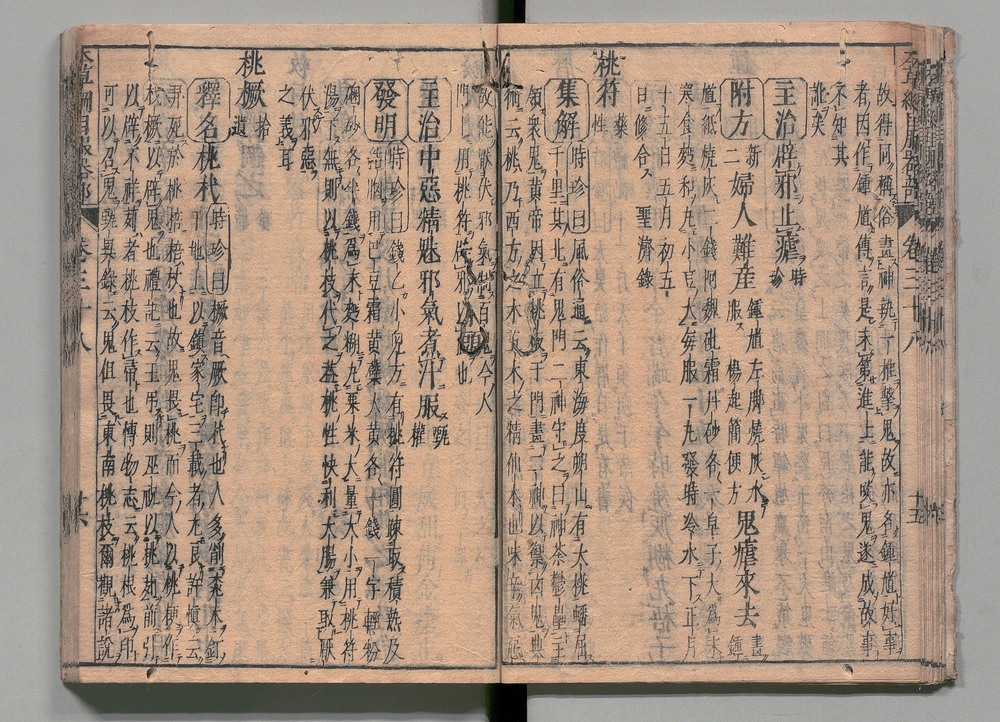 故得同稱俗畫神執一椎擊鬼故亦名鍾馗好事
者因作鍾馗傳言是未第進士能啖鬼遂成故事
不知其
訛矣
主治辟邪止瘧時珍
附方新二婦人難産鍾馗左脚燒灰水服楊起簡便方鬼瘧來去畫鍾
馗紙燒灰二錢阿魏砒霜丹砂各一皂子大爲末
寒食麪和丸小豆大每服一丸發時冷水下正月
十五日五月初五
日修合聖濟錄
桃符藥性
集解時珍曰風俗通云東海度朔山有大桃蟠屈
千里其北有鬼門二神守之曰神荼鬱壘主
領衆鬼黃帝因立桃板于門畫二神以禦凶鬼典
術云桃乃西方之木五木之精仙木也味辛氣惡
故能厭伏邪氣制百鬼今人
門上用桃符辟邪以此也
主治中惡精魅邪氣煮汁服甄權
發明時珍曰錢乙小兒方有桃符圓疎取積熱及
結胸用巴豆霜黃蘗大黃各一錢一字輕粉
硇砂各半錢爲末麪糊丸粟米大量大小用桃符
湯下無則以桃枝代之蓋桃性快利大腸兼取厭
伏邪惡
之義耳
桃橛拾遺
釋名桃杙時珍曰橛音厥卽杙也人多削桃木釘
于地上以鎮家宅三載者尤良許愼云
羿死於桃棓棓杖也故鬼畏桃而今人以桃梗作
杙橛以辟鬼也禮記云王弔則巫祝以桃茢前引
以辟不祥茢者桃枝作帚也博物志云桃根爲印
可以召鬼甄異錄云鬼但畏東南桃枝爾觀諸說
卷三十八
十五
卷三十八
十六